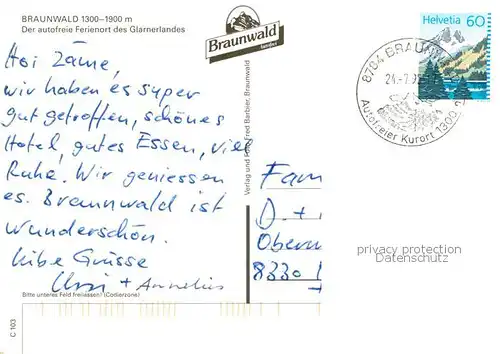 BRAUNWALD 1300–1900 m
Der autofreie Ferienort des Glarnerlandes
Braunwald
autofrei
Helvetia 60
8784 BRAUNW
24.-7.9
Autofreier Kurort 1300
Hoi Zäme,
wir haben es super
gut getroffen, schönes
Hotel, gutes Essen, viel
Ruhe. Wir geniessen
es. Braunwald ist
wunderschön.
Liebe Grüsse
Ursi + Annelies
Verlag und Foto Fred Barbier, Braunwald
Fam
D. +
Obern
8330
privacy protection
Datenschutz
Bitte unteres Feld freilassen! (Codierzone)
C 103